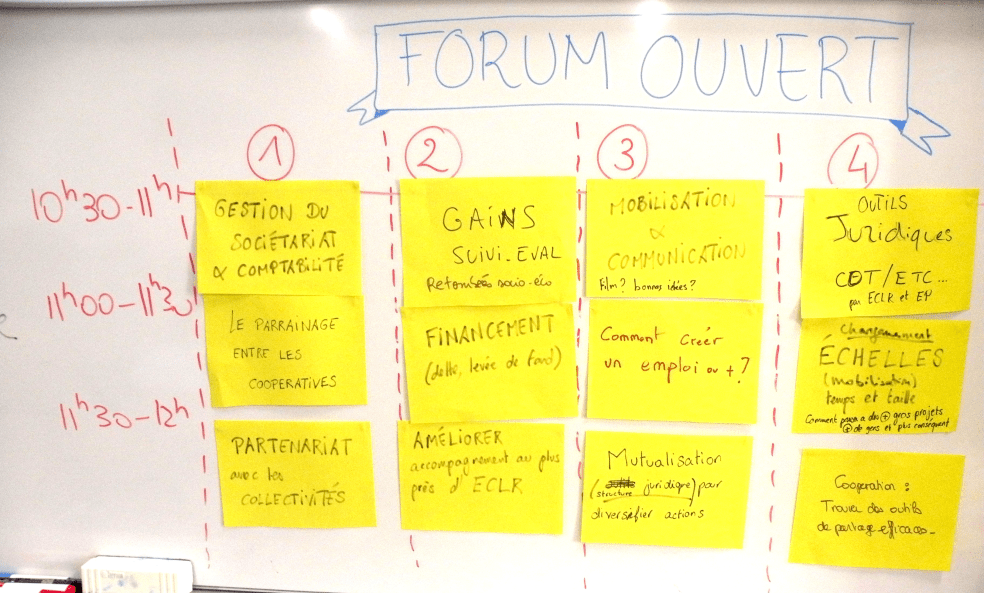 FORUM OUVERT
1
2
3
4
10h30-11h
11h00-11h30
11h30-12h
GESTION DU
SOCIÉTARIAT
& COMPTABILITÉ
LE PARRAINAGE
ENTRE LES
COOPERATIVES
PARTENARIAT
avec les
COLLECTIVITÉS
GAINS
SUIVI-EVAL
Retombées socio-éco
FINANCEMENT
(dette, levée de fond)
AMÉLIORER
accompagnement au plus
près d'ECLR
MOBILISATION
&
COMMUNICATION
Film? bonnes idées?
Comment créer
un emploi ou + ?
Mutualisation
(outils juridique) pour
structure
diversifier actions
OUTILS
Juridiques
CDT/ETC...
par ECLR et EP
Changement
ÉCHELLES
(mobilisation)
temps et taille
Comment passer a des + gros projets
+ de gens et plus conséquent
Cooperation :
Trouver des outils
de partage efficaces-